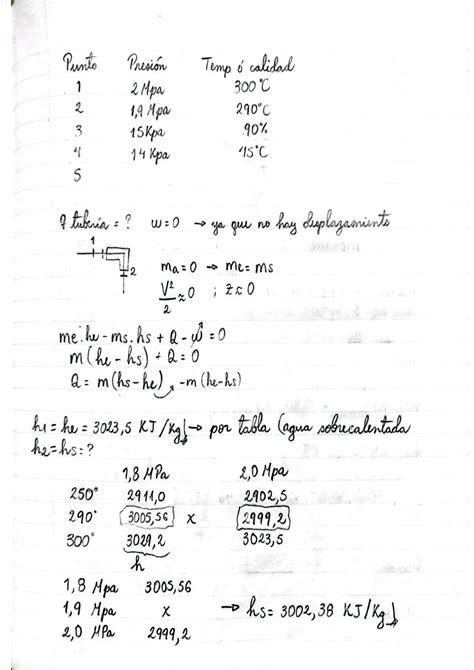 Punto Presión Temp ó calidad
1 2 Mpa 300°C
2 1,9 Mpa 290°C
3 15 Kpa 90%
4 14 Kpa 45°C
5
q tubería = ? w=0 → ya que no hay desplazamiento
1
2
ma = 0 → me = ms
V²/2 ≈ 0 ; z ≈ 0
me.he - ms.hs + Q - W = 0
m (he - hs) + Q = 0
Q = m (hs - he) → -m (he-hs)
h1 = he = 3023,5 KJ/Kg → por tabla (agua sobrecalentada
h2 = hs = ?
1,8 MPa 2,0 Mpa
250° 2911,0 2902,5
290° 3005,56 x 2999,2
300° 3029,2 3023,5
h
1,8 Mpa 3005,56
1,9 Mpa x → hs = 3002,38 KJ/Kg
2,0 MPa 2999,2